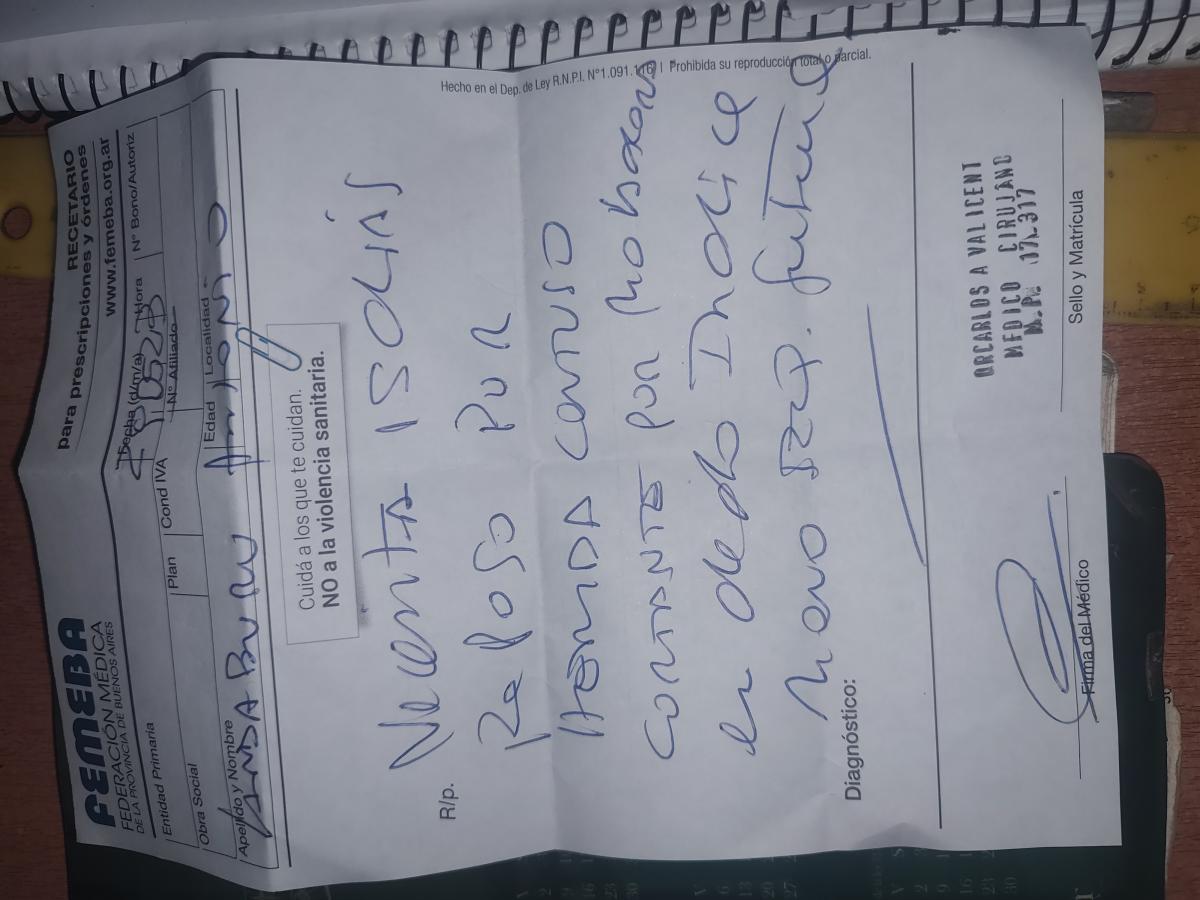 FEMEBA
FEDERACIÓN MÉDICA
DE LA PROVINCIA DE BUENOS AIRES
RECETARIO
para prescripciones y órdenes
www.femeba.org.ar
Entidad Primaria
Fecha (d/m/a)
Hora
N° Bono/Autoriz
Obra Social
Plan
Cond IVA
N° Afiliado
Apellido y Nombre
Edad
Localidad
ANTONIO
Cuidá a los que te cuidan.
NO a la violencia sanitaria.
R/p.
Necesita 15 DIAS
Reposo por
Herida contuso
cortante por
en dedo Indice
mano izq.
Diagnóstico:
Hecho en el Dep. de Ley R.N.P.I. N°1.091.116 | Prohibida su reproducción total o parcial.
DR CARLOS A VALICENT
MEDICO CIRUJANO
M.P. 17317
Firma del Médico
Sello y Matrícula